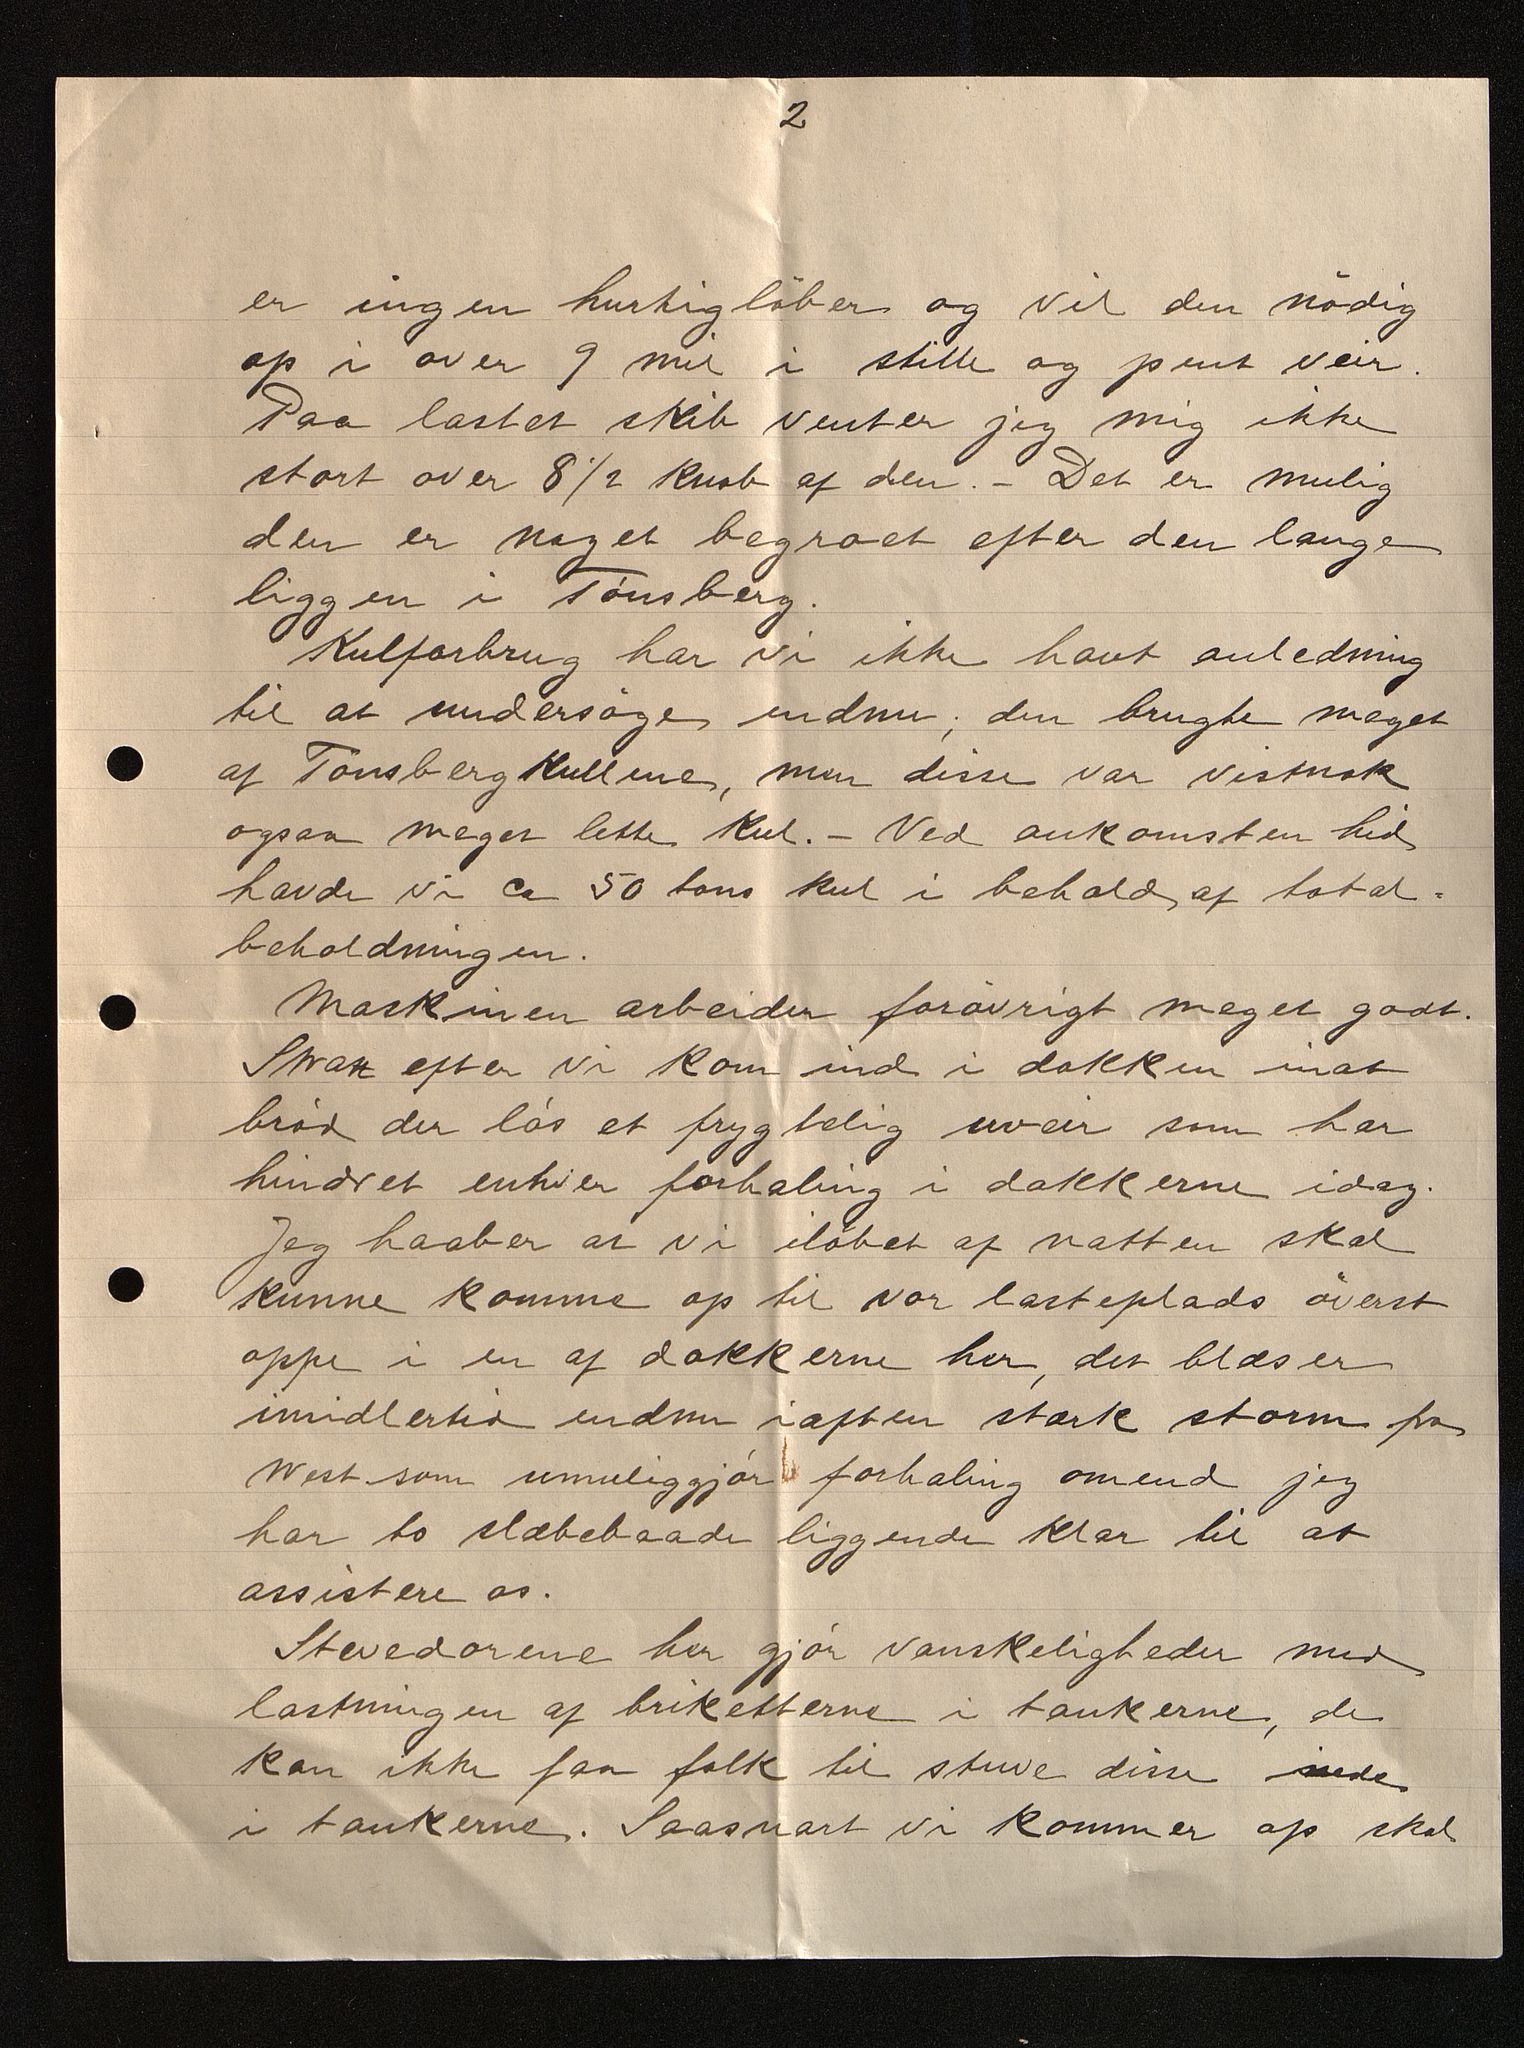 2
er ingen hurtigløber og vil den nødig
op i over 9 mil i stille og pent veir.
Paa lastet skib venter jeg mig ikke
stort over 8 1/2 knob af den. - Det er mulig
den er noget begroet efter den lange
liggen i Tønsberg.
Kulforbrug har vi ikke havt anledning
til at undersøge endnu, den brugte meget
af Tønsbergkullene, men disse var vistnok
ogsaa meget lette kul. - Ved ankomsten hid
havde vi ca 50 tons kul i behold af total-
beholdningen.
Maskinen arbeider forøvrigt meget godt.
Strax efter vi kom ind i dokken inat
brød der løs et frygtelig uveir som har
hindret enhver forhaling i dokkerne idag.
Jeg haaber at vi iløbet af natten skal
kunne komme op til vor lasteplads øverst
oppe i en af dokkerne her, det blæser
imidlertid endnu iaften stærk storm fra
West som umuliggjør forhaling omend jeg
har to slæbebaade liggende klar til at
assistere os.
Stevedorene her gjør vanskeligheder med
lastningen af briketterne i tankerne, de
kan ikke faa folk til stuve disse nede
i tankerne. Saasnart vi kommer op skal